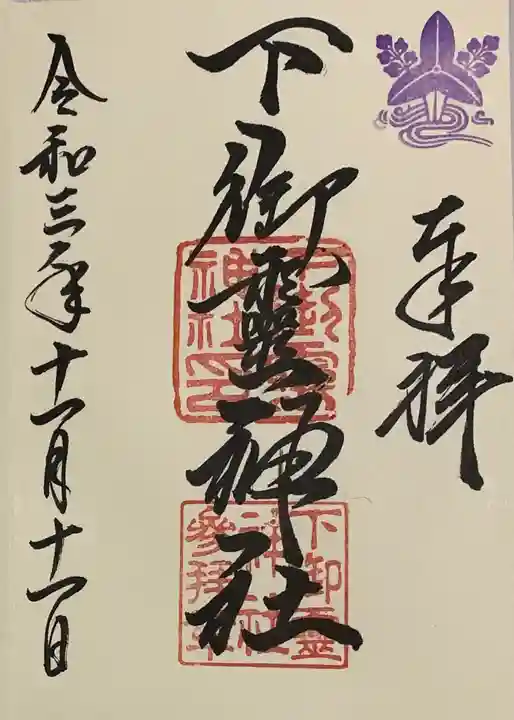 奉拝
下御靈神社
下御靈神社印
下御靈神社参拝章
令和三年十一月十一日